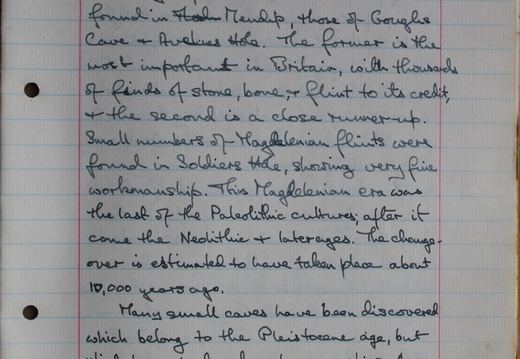 found in Mendip, those of Goughs
Cave + Avelines Hole. The former is the
most important in Britain, with thousands
of finds of stone, bone, + flint to its credit,
+ the second is a close runner-up.
Small numbers of Magdelenian flints were
found in Soldiers Hole, showing very fine
workmanship. This Magdelenian era was
the last of the Paleolithic cultures; after it
came the Neolithic + later ages. The change-
over is estimated to have taken place about
10,000 years ago.
Many small caves have been discovered
which belong to the Pleistocene age, but